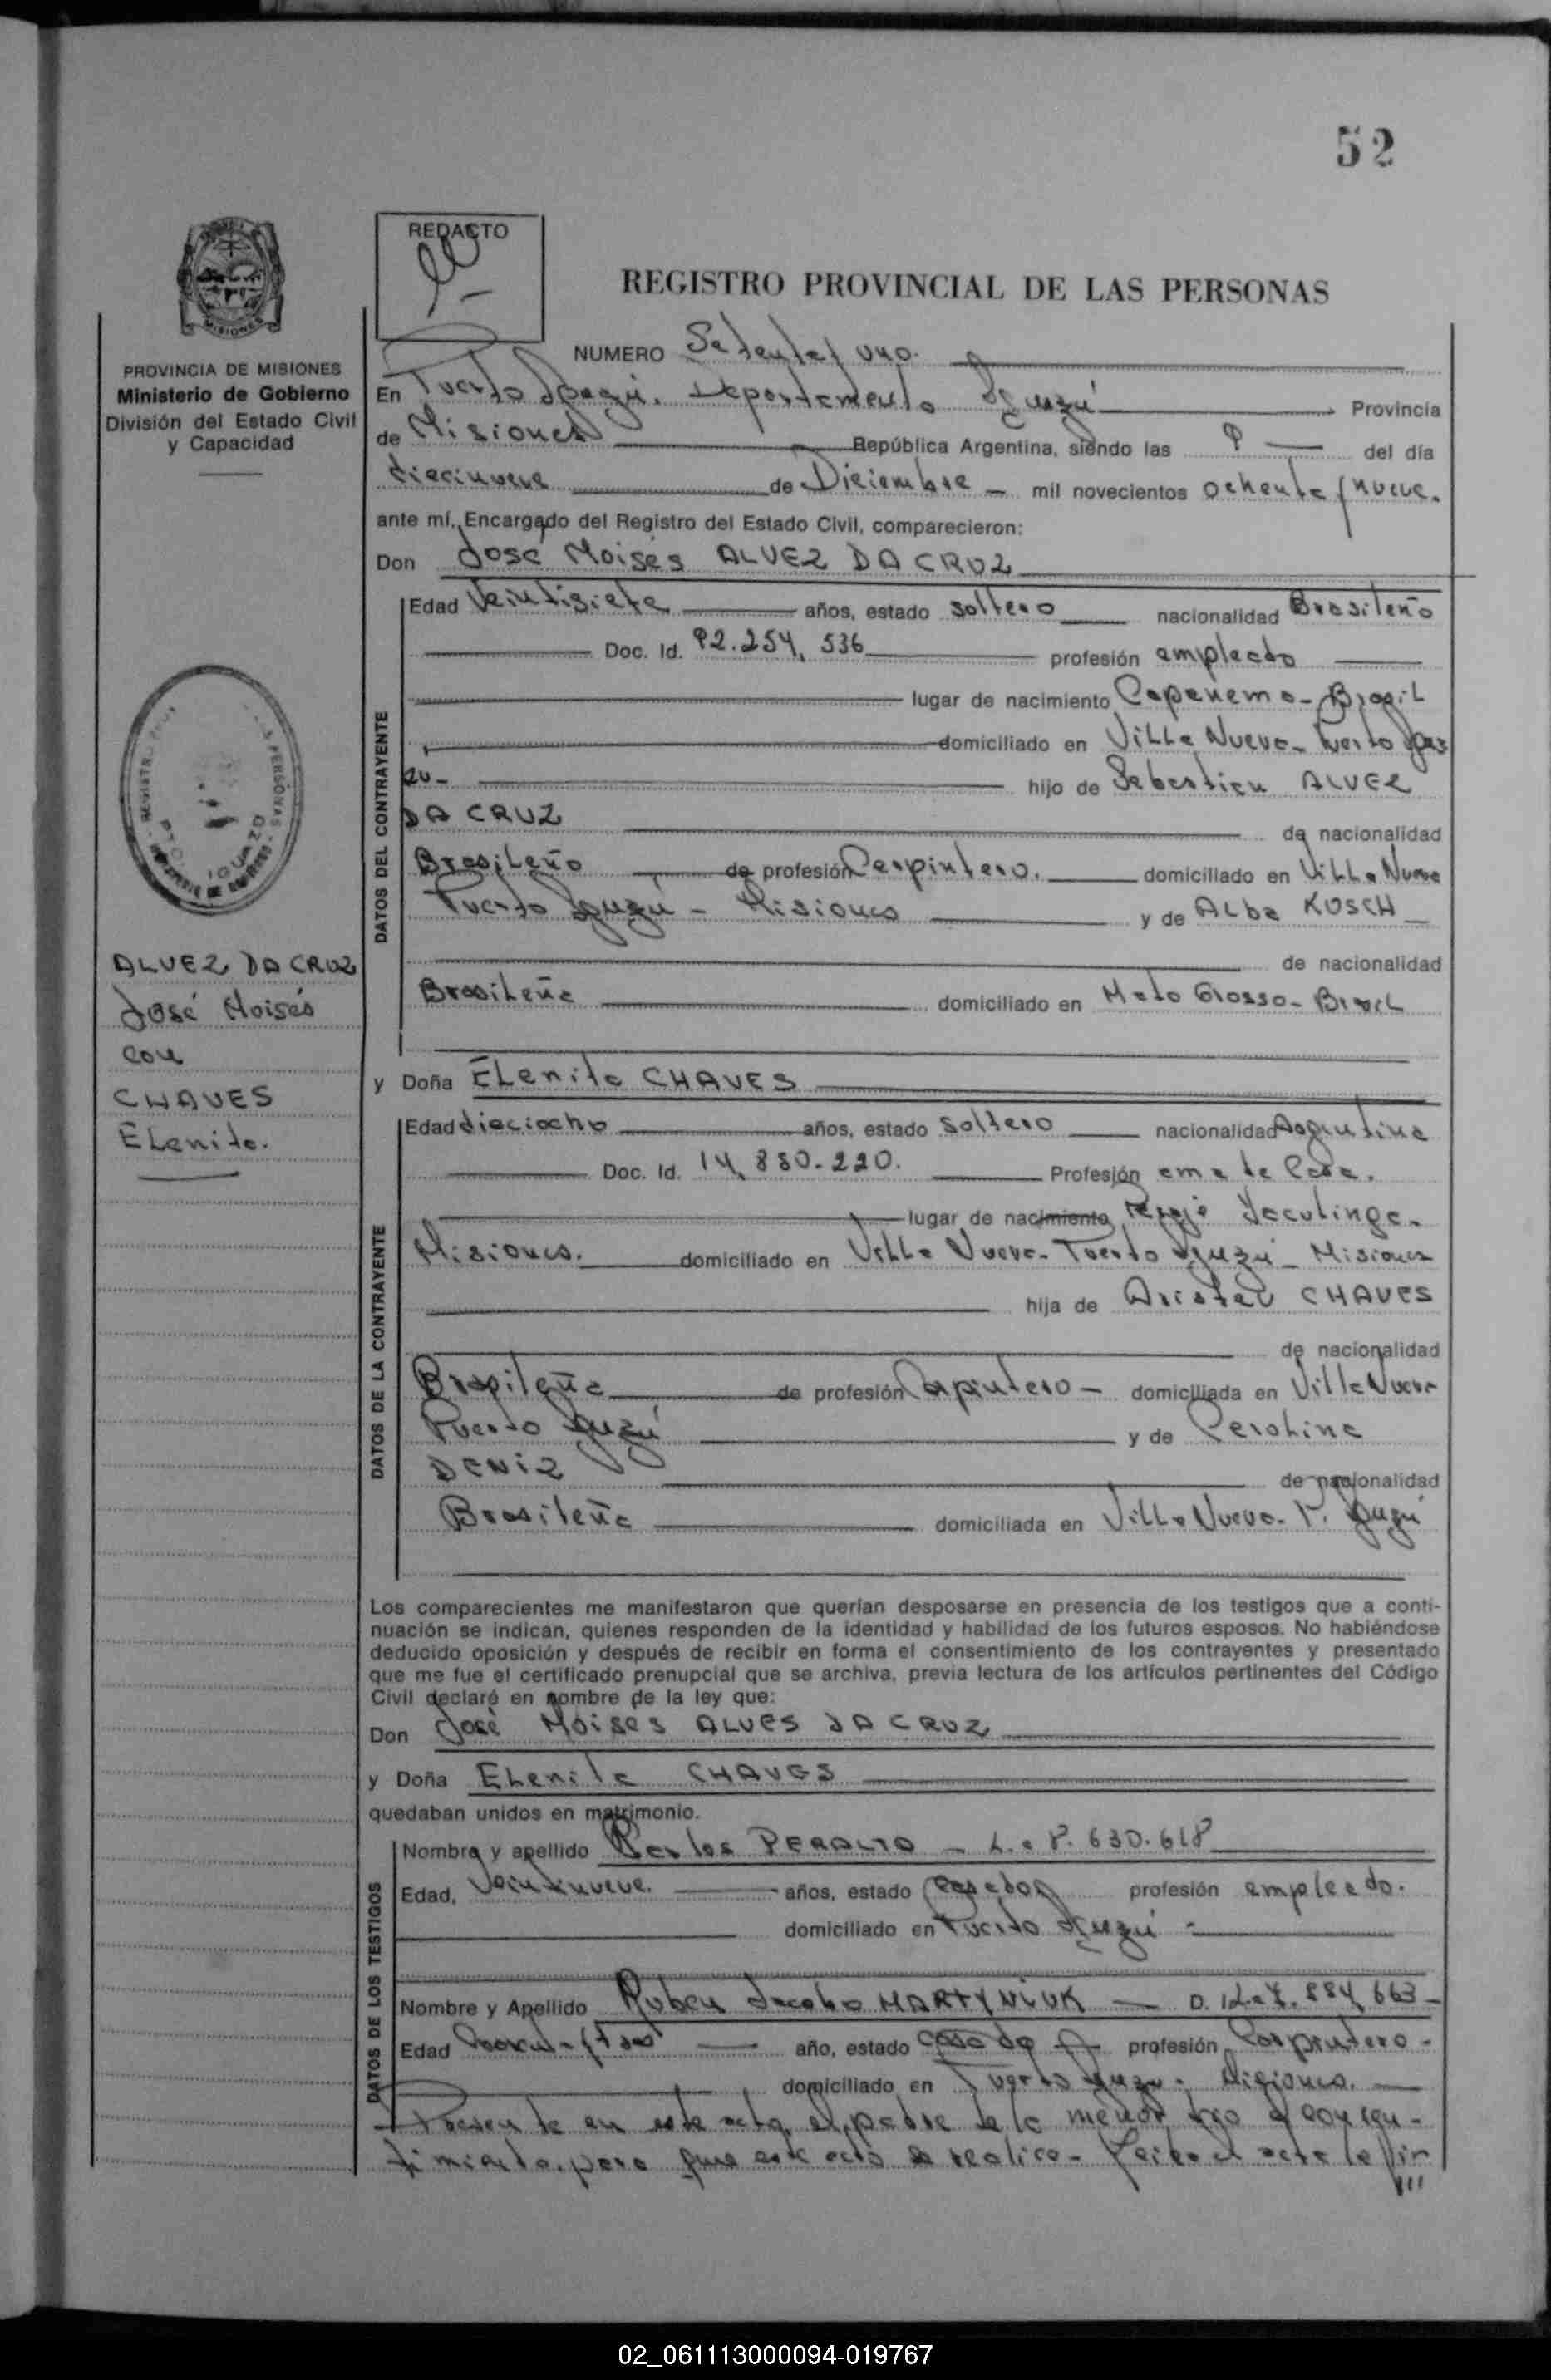 52
REDACTO
REGISTRO PROVINCIAL DE LAS PERSONAS
MISIONES
PROVINCIA DE MISIONES
Ministerio de Gobierno
División del Estado Civil
y Capacidad
NUMERO Setenta y uno.
En Puerto Iguazú. Departamento Iguazú Provincia
de Misiones República Argentina, siendo las 9 del día
diecinueve de Diciembre - mil novecientos ochenta y nueve.
ante mí, Encargado del Registro del Estado Civil, comparecieron:
Don José Moisés ALVEZ DA CRUZ
DATOS DEL CONTRAYENTE
Edad Veintisiete años, estado soltero nacionalidad Brasileño
Doc. Id. 92.254.536 profesión empleado
lugar de nacimiento Capanema - Brasil
domiciliado en Villa Nueva - Puerto Igua
zu - hijo de Sebastian ALVEZ
DA CRUZ de nacionalidad
Brasileño de profesión Carpintero. domiciliado en Villa Nueva
Puerto Iguazú - Misiones y de Alba KOSCH
de nacionalidad
Brasileña domiciliado en Mato Grosso - Brasil
ALVEZ DA CRUZ
José Moisés
con
CHAVES
Elenita.
y Doña Elenita CHAVES
DATOS DE LA CONTRAYENTE
Edad dieciocho años, estado soltero nacionalidad Argentina
Doc. Id. 14.880.220. Profesión ama de Casa.
lugar de nacimiento Paraje Tacutinga.
Misiones. domiciliado en Villa Nueva - Puerto Iguazú - Misiones
hija de CHAVES
de nacionalidad
Brasileña de profesión Carpintero - domiciliada en Villa Nueva
Puerto Iguazú y de
DENIZ de nacionalidad
Brasileña domiciliada en Villa Nueva - P. Iguazú
Los comparecientes me manifestaron que querían desposarse en presencia de los testigos que a conti-
nuación se indican, quienes responden de la identidad y habilidad de los futuros esposos. No habiéndose
deducido oposición y después de recibir en forma el consentimiento de los contrayentes y presentado
que me fue el certificado prenupcial que se archiva, previa lectura de los artículos pertinentes del Código
Civil declaré en nombre de la ley que:
Don José Moises ALVES DA CRUZ
y Doña Elenita CHAVES
quedaban unidos en matrimonio.
DATOS DE LOS TESTIGOS
Nombre y apellido Carlos PERALTA - 630.618
Edad, Veintinueve. años, estado Casado profesión empleado.
domiciliado en Puerto Iguazú -
Nombre y Apellido Ruben Jacobo MARTYNIUK - 884.663 -
Edad año, estado Casado profesión Carpintero -
domiciliado en Puerto Iguazu. Misiones.
Presente en este acto el padre de la menor dio el consen-
timiento para que este acto se realice -
02_061113000094-019767